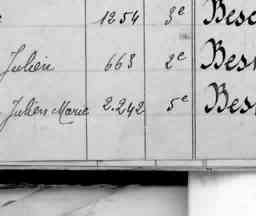 1254 3e Besc
Julien 663 2e Bes
Julien Marie 2.242 5e Bes